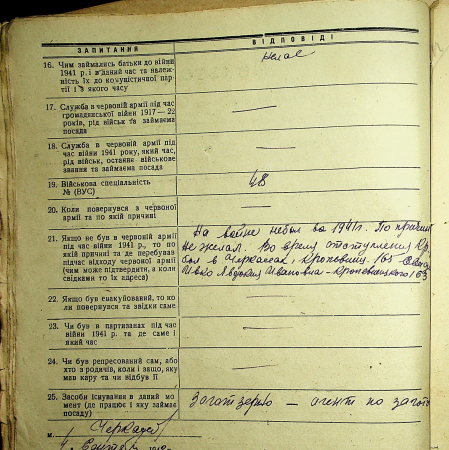 ЗАПИТАННЯ
ВІДПОВІДІ
16. Чим займались батьки до війни
1941 р. і в даний час та належ-
ність їх до комуністичної пар-
тії і з якого часу
17. Служба в червоній армії під час
громадянської війни 1917—22
років, рід військ та займаєма
посада
18. Служба в червоній армії під
час війни 1941 року, який час,
рід військ, останнє військове
звання та займаєма посада
19. Військова спеціяльність
№ (ВУС)
48
20. Коли повернувся з червоної
армії та по якій причині
21. Якщо не був в червоній армії
під час війни 1941 р., то по
якій причині та де перебував
підчас відходу червоної армії
(чим може підтвердити, а коли
свідками то їх адреса)
На войне небыл во 1941г. По
Не желал. Во время отступления
был в Черкассах
Ивановна
22. Якщо був евакуйований, то ко-
ли повернувся та звідки саме
23. Чи був в партизанах під час
війни 1941 р. та де саме і
який час
24. Чи був репресований сам, або
хто з родичів, коли і защо, яку
мав кару та чи відбув її
25. Засоби існування в даний мо-
мент (де працює і яку займає
посаду)
Заготзерно — агент по
м.